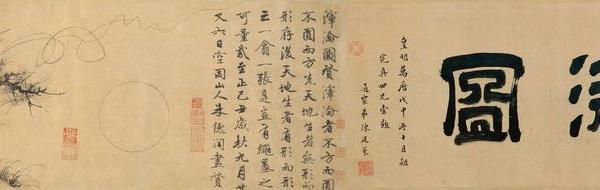 圖
皇明萬曆戊申冬十月朔
世兄索題
弟陳
渾淪圖贊渾淪者不方而圓
不圓而方先天地生者無形而
形存後天地生者有形而形
亡一翕一張是豈有繩墨之
可量哉至正己丑歲秋九月廿
又六日空同山人朱德潤畫贊